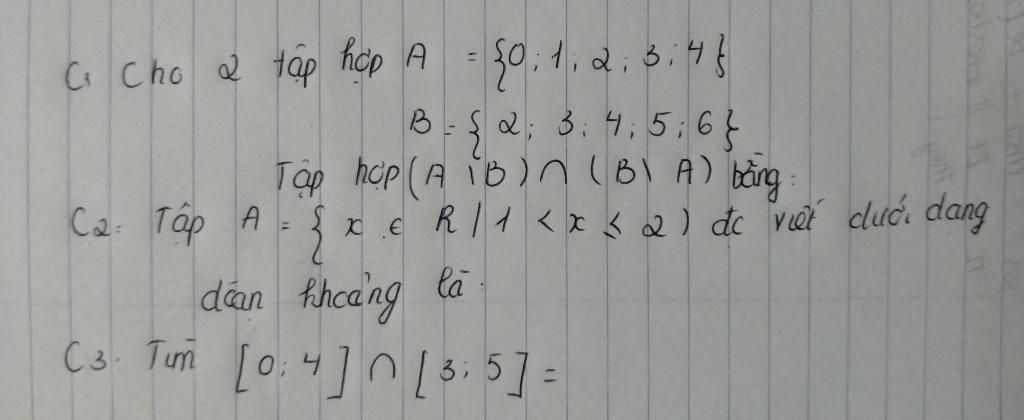 C1 Cho 2 tập hợp A = {0; 1; 2; 3; 4}
B = { 2; 3; 4; 5; 6}
Tập hợp (A \ B) ∩ (B \ A) bằng:
C2: Tập A = { x ∈ R / 1 < x ≤ 2 ) đc viết dưới dạng
đoạn khoảng là.
C3. Tìm [0; 4] ∩ [3; 5] =